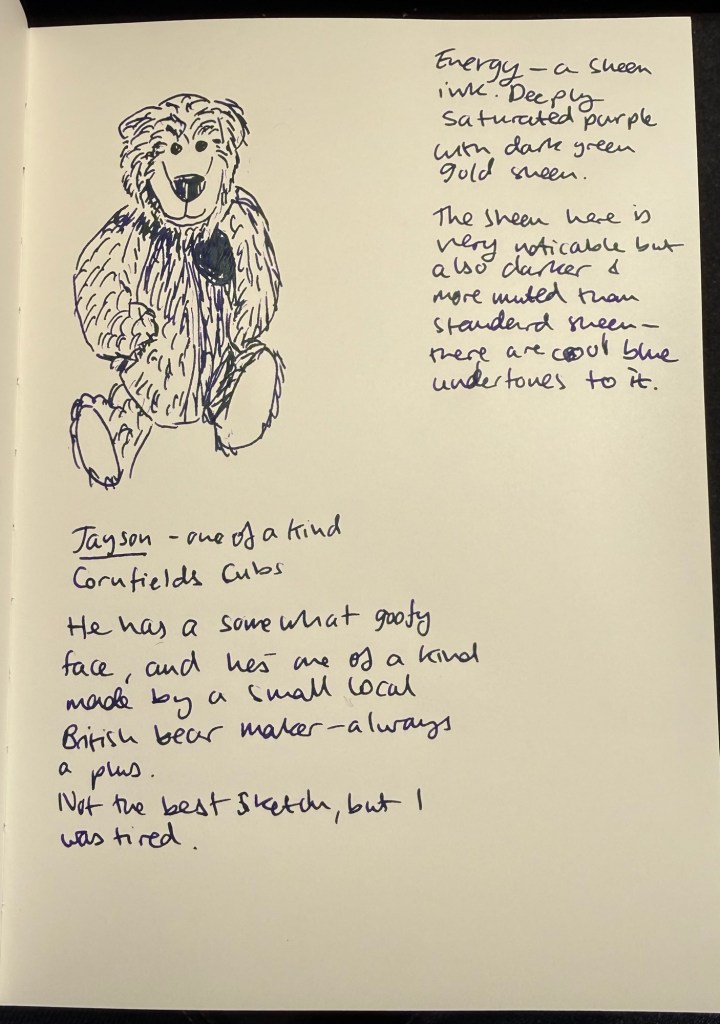 Energy – a sheen
ink. Deeply
saturated purple
with dark green
gold sheen.
The sheen here is
very noticable but
also darker &
more muted than
standard sheen –
there are cool blue
undertones to it.
Jayson - one of a kind
Cornfields Cubs
He has a somewhat goofy
face, and he's one of a kind
made by a small local
British bear maker – always
a plus.
Not the best sketch, but I
was tired.